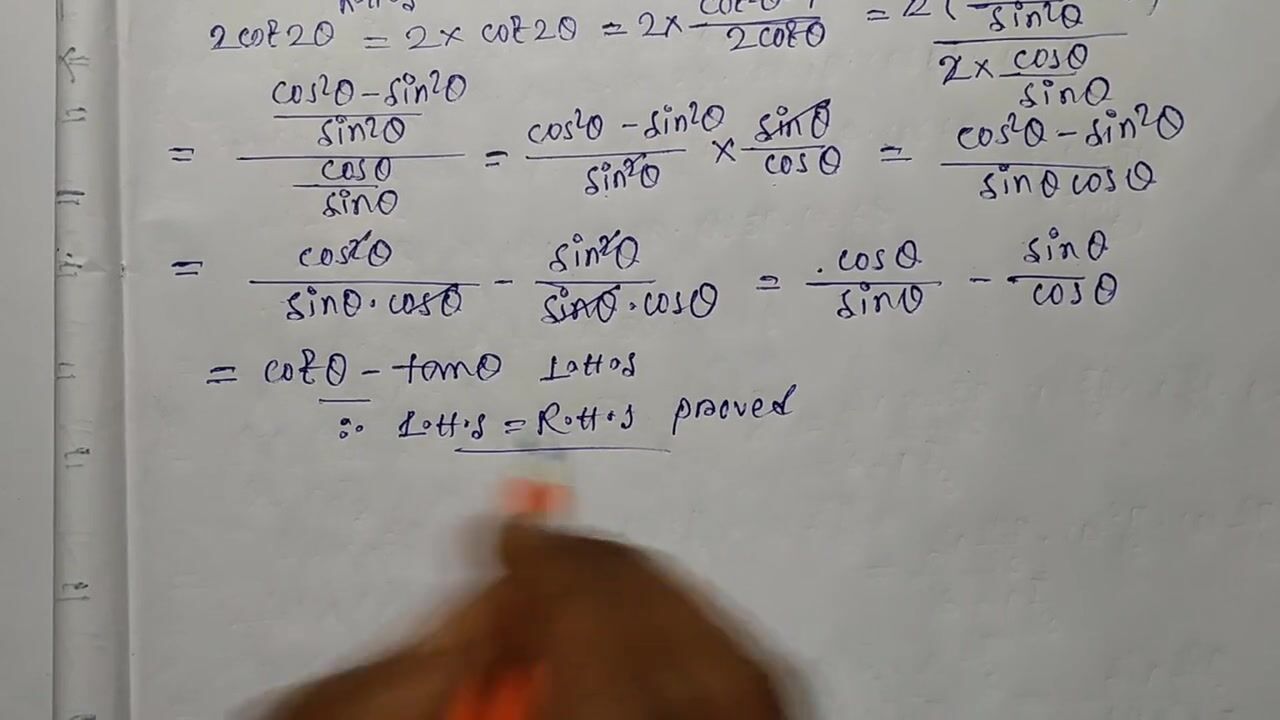 2cot2θ = 2 × cot2θ = 2 × / 2cotθ = 2( / sin²θ / 2 × cosθ / sinθ
= cos²θ - sin²θ / sin²θ / cosθ / sinθ = cos²θ - sin²θ / sin²θ × sinθ / cosθ = cos²θ - sin²θ / sinθ cosθ
= cos²θ / sinθ . cosθ - sin²θ / sinθ . cosθ = . cosθ / sinθ - sinθ / cosθ
= cotθ - tanθ L.H.S
∴ L.H.S = R.H.S proved